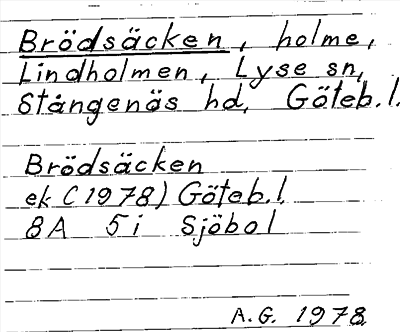 Brödsäcken, holme,
Lindholmen, Lyse sn,
Stångenäs hd, Göteb.l.
Brödsäcken
ek (1978) Göteb.l.
8A 5i Sjöbol
A.G. 1978